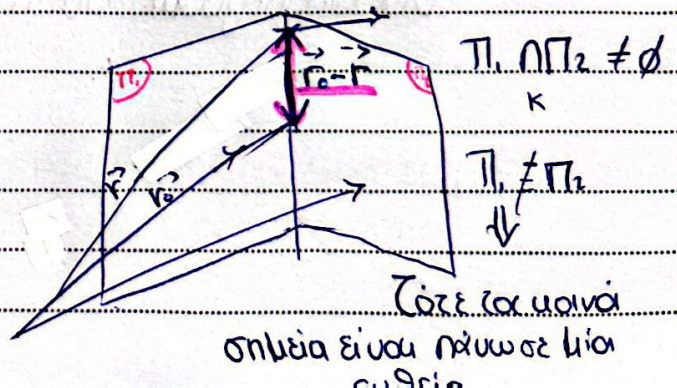 Π₁ ∩Π₂ ≠ ∅
Π₁
r⃗₀-r⃗
κ
r⃗
r⃗₀
Π₁ ≢ Π₂
⇓
Τότε τα κοινά
σημεία είναι πάνω σε μία
ευθεία